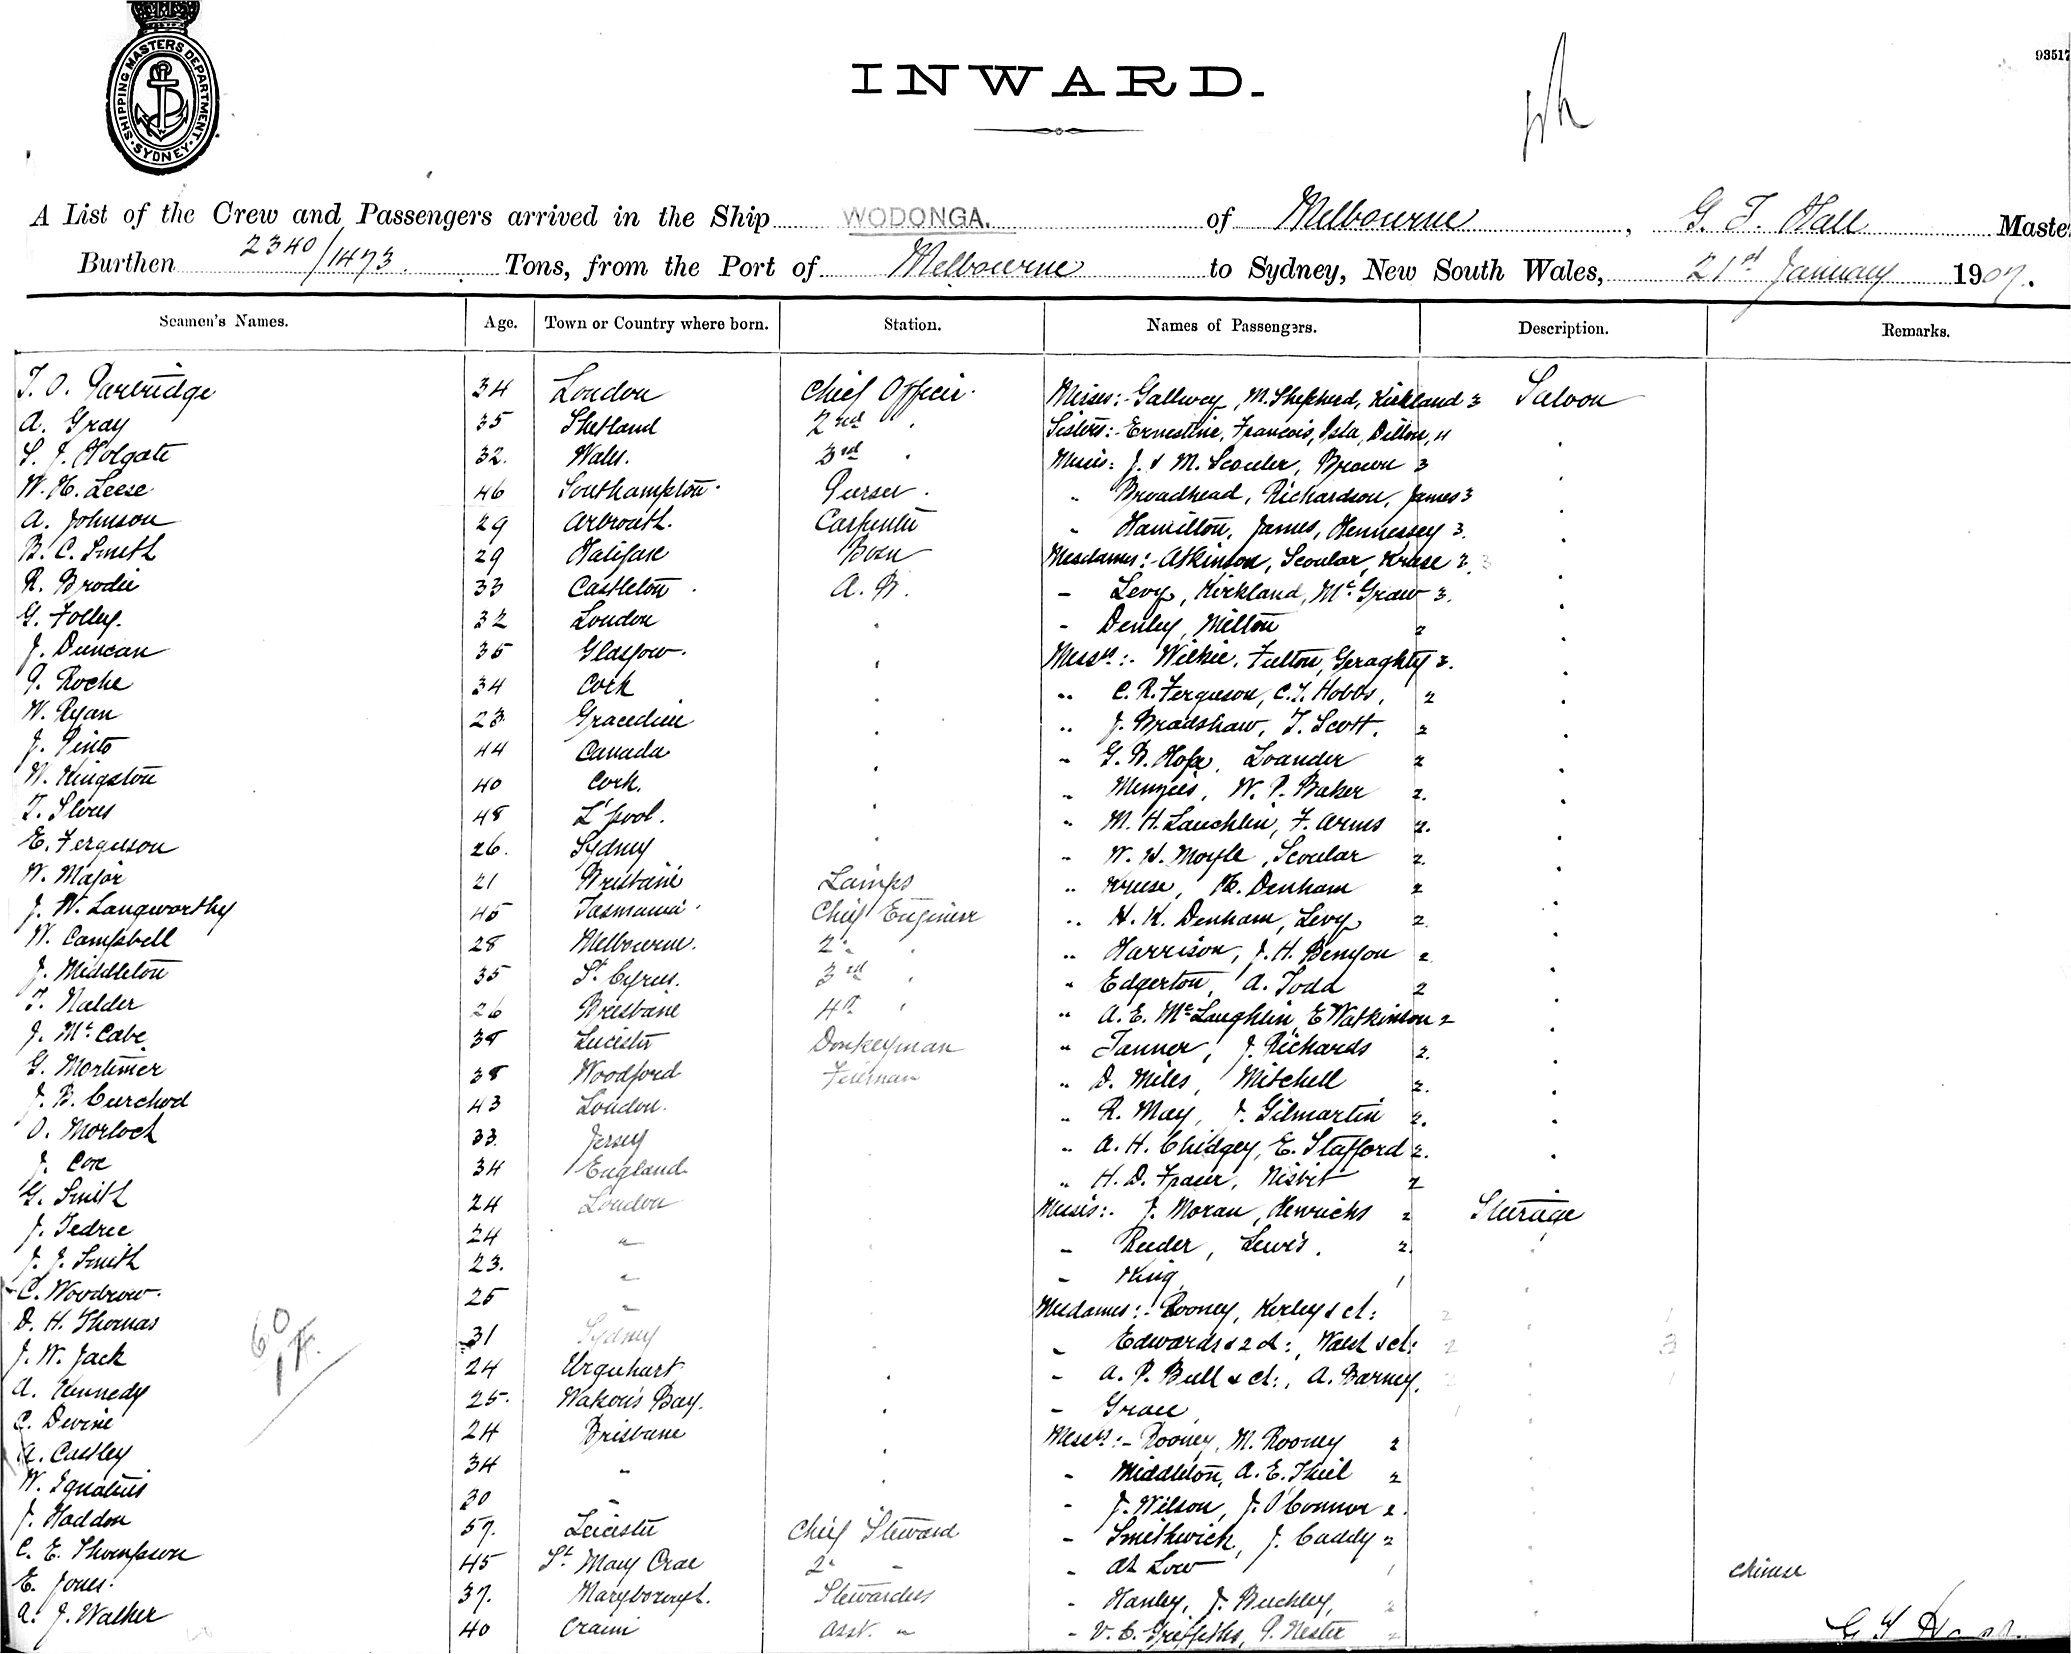 SHIPPING MASTERS DEPARTMENT
SYDNEY
93517
INWARD.
A List of the Crew and Passengers arrived in the Ship WODONGA. of Melbourne, G. T. Hall Master
Burthen 2340/1473. Tons, from the Port of Melbourne to Sydney, New South Wales, 21st January 1907.
Seamen's Names. Age. Town or Country where born. Station. Names of Passengers. Description. Remarks.
34 London Chief Officer. Misses:- Gallwey, M. Shepherd, Kirkland 3 Saloon
A. Gray 35 Shetland 2nd Sisters:- Ernestine, Francois, Dillon, 4
S. J. Holgate 32. Wales. 3rd Misses: J. & M. Scouler, Brown 3
W. H. Leese 46 Southampton. Purser. " Broadhead, Richardson, James 3
A. Johnson 29 Arbroath. Carpenter " Hamilton, James, Hennessey 3.
B. C. Smith 29 Halifax Bosn Mesdames:- Atkinson, Scoular, Kruse 3
R. Brodie 33 Castleton A.B. - Levy, Kirkland, McGraw 3.
G. Folley. 32 London - Denley, Milton 2
J. Duncan 35 Glasgow. Messrs:- Wilkie, Fulton, Geraghty 3.
Roche 34 Cork " C. R. Ferguson, C. J. Hobbs, 2
W. Ryan 23 Gracedieu " J. Bradshaw, T. Scott. 2
J. Pinto 44 Canada " G. B. Hope, Loander 2
W. Kingston 40 Cork. " Menzies, W. P. Baker 2.
48 L'pool. " M. H. Lauchlin, F. Arms 2.
E. Ferguson 26. Sydney " W. H. Moyle, Scoular 2.
W. Major 21 Brisbane Lamps " Kruse, H. Denham 2
J. W. Langworthy 45 Tasmania Chief Engineer " H. K. Denham, Levy 2
W. Campbell 28 Melbourne. 2" " Harrison, J. H. Benyon 2
J. Middleton 35 St Cyrus. 3rd " Edgerton, A. Todd 2
T. Nalder 26 Brisbane 4th " A. E. McLaughlin, E Watkinson 2
J. McCabe 38 Leicester Donkeyman " Tanner, J. Richards 2.
G. Mortimer 38 Woodford Fireman " D. Miles, Mitchell 2.
J. B. Curchod 43 London. " R. May, J. Gilmartin 2.
O. Morloch 33. Jersey " A. H. Chidgey, E. Stafford 2.
J. Cox 34 England " H. D. Fraser, Nisbit 2
G. Smith 24 London Misses:- J. Moran, Henrichs 2 Steerage
J. Tedree 24 " - Reeder, Lewis. 2.
J. J. Smith 23. " - King 1
C. Woodrow. 25 " Mesdames:- Rooney, Kerley & ch:
D. H. Thomas 31 Sydney - Edwards & 2 ch:, Walsh & ch:
J. W. Jack 24 Urquhart - A. P. Bull & ch:, A. Barney,
A. Kennedy 25. Bay. - Grace
C. Devine 24 Brisbane Messrs:- Rooney, M. Rooney 2
A. Castley 34 " - Middleton, A. E. Thiel 2
W. Ignatius 30 " - J. Wilson, J. O'Connor 2.
J. Haddon 57. Leicester Chief Steward - Smithwick, J. Caddy 2
C. E. Thompson 45 St Mary Cray 2" - Ah Low 1 Chinese
E. Jones. 37. Maryborough. Stewardess - Hanley, J. Buckley, 2
A. J. Walker 40 Asst. " - V. C. Griffiths, P. Nester 2